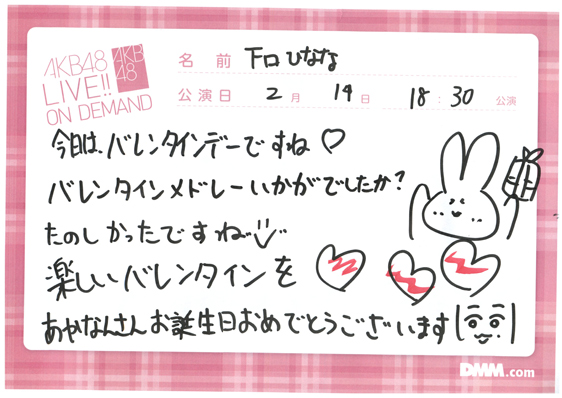 AKB48
LIVE!!
ON DEMAND
AKB
48
名前 下口ひなな
公演日 2月 14日 18:30 公演
今日は、バレンタインデーですね♡
バレンタインメドレーいかがでしたか?
たのしかったですね
楽しいバレンタインを
あやなんさんお誕生日おめでとうございます
DMM.com